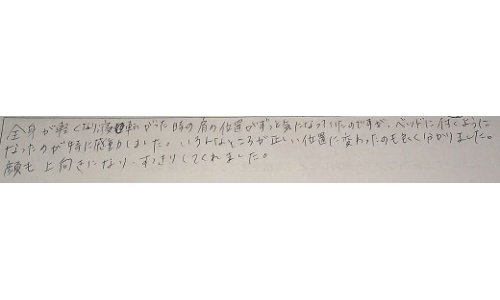 全身が軽くなり、寝転がった時の肩の位置がずっと気になっていたのですが、ベッドに付くように
なったのが特に感動しました。いろんなところが正しい位置に変わったのもよく分かりました。
顔も上向きになり、すっきりしてくれました。